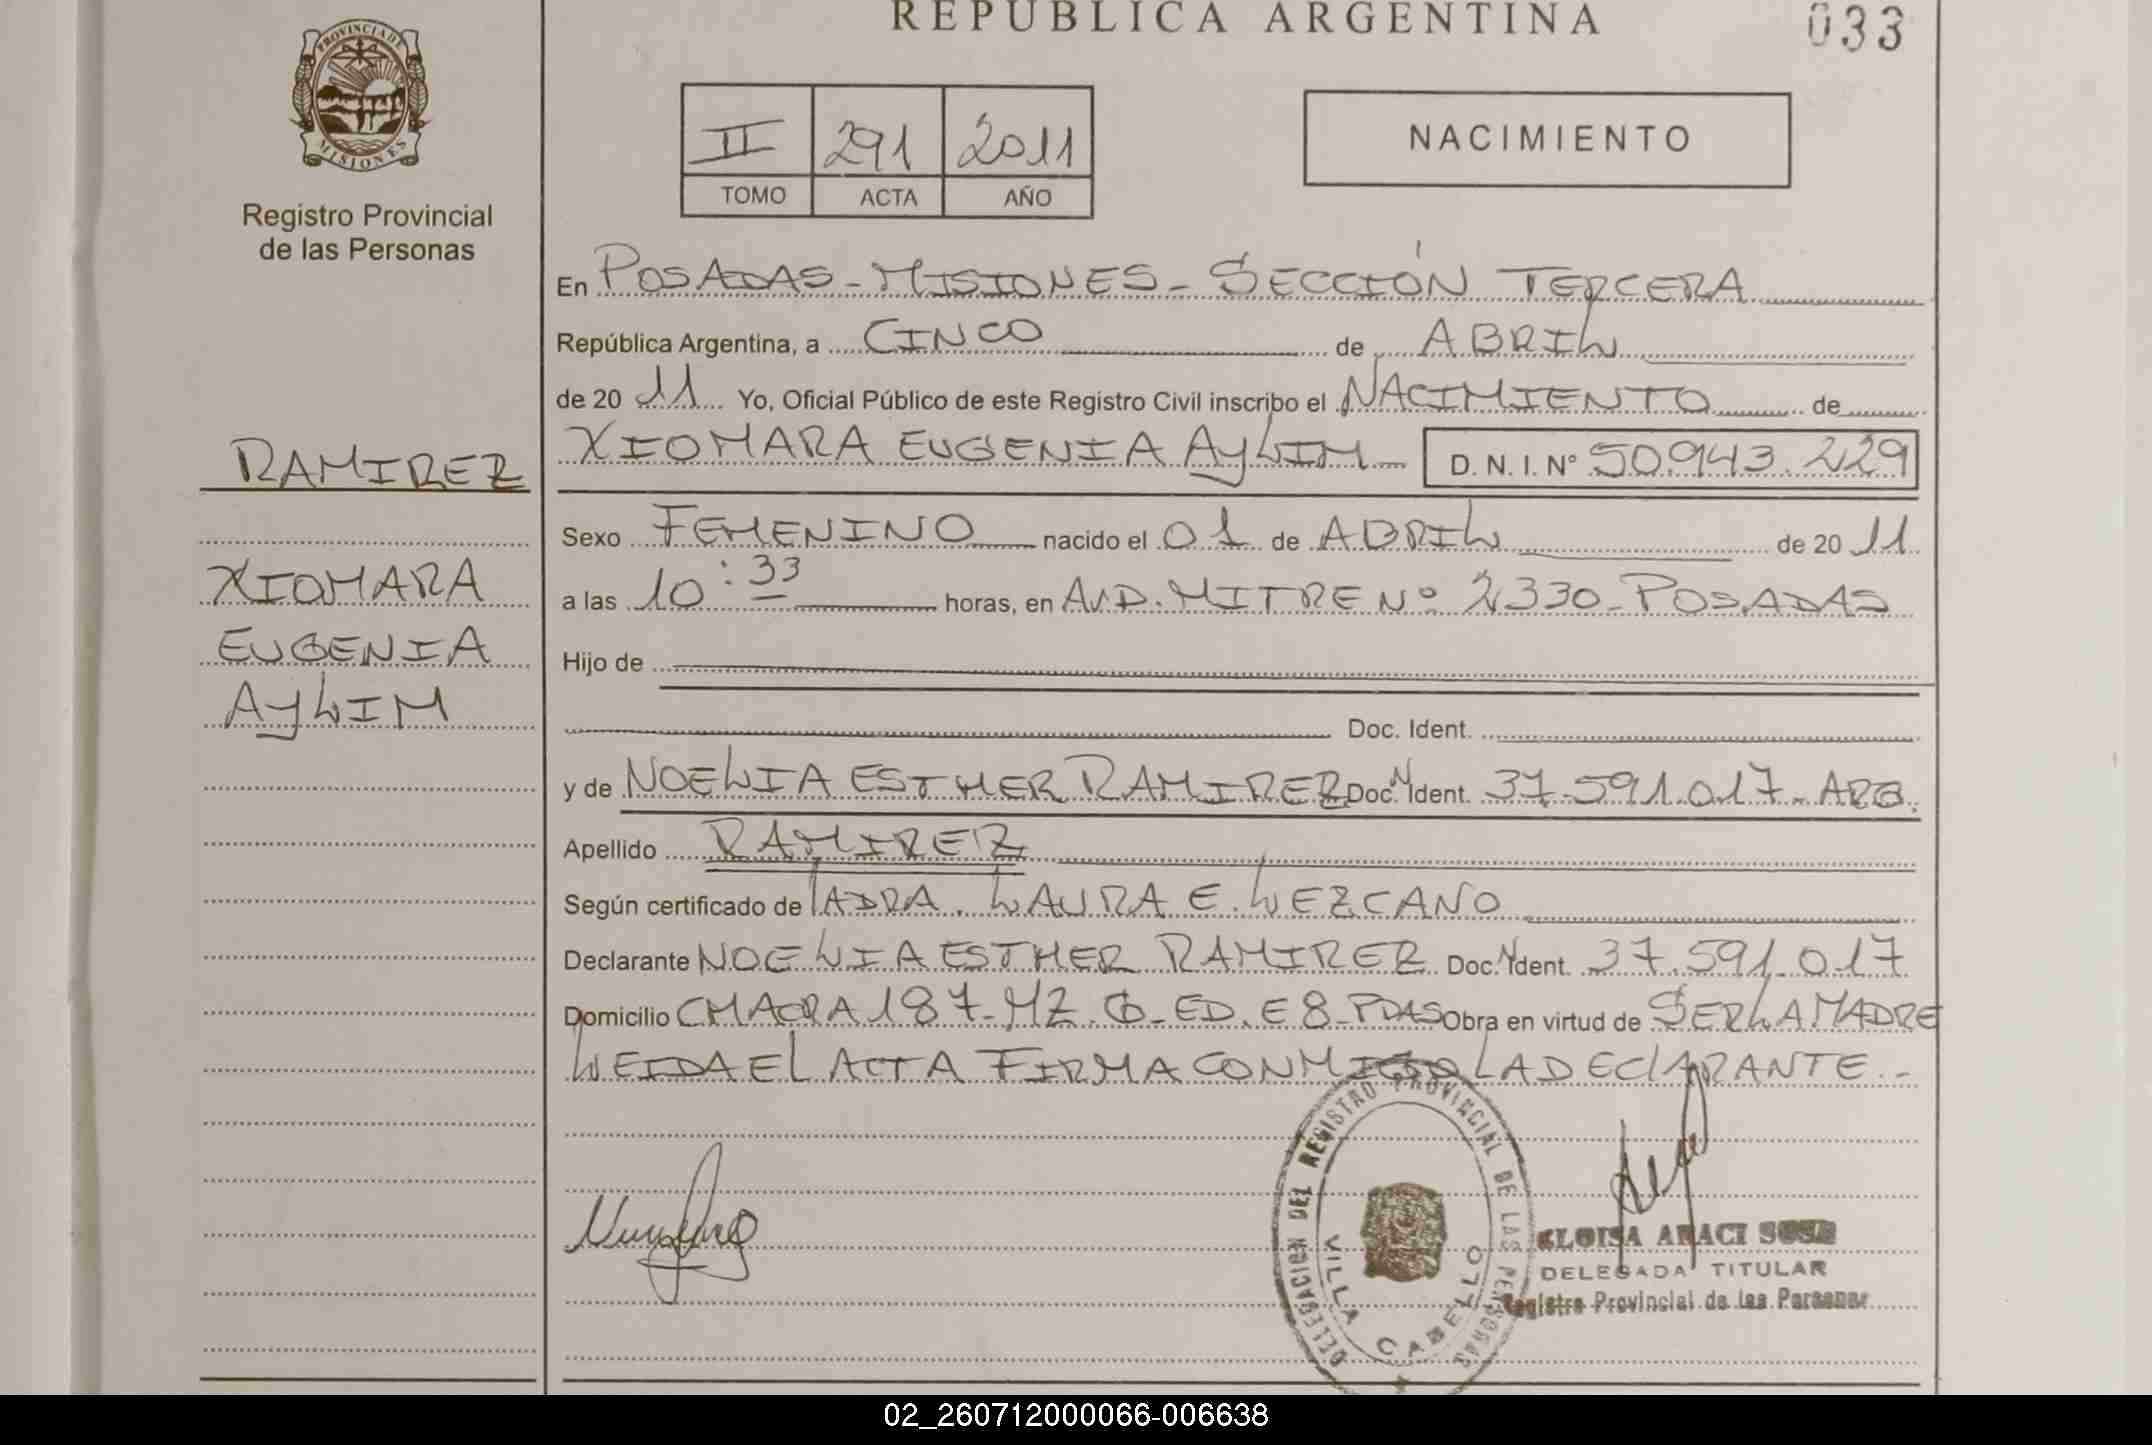 REPUBLICA ARGENTINA
033
PROVINCIA DE
MISIONES
Registro Provincial
de las Personas
II 291 2011
TOMO ACTA AÑO
NACIMIENTO
En POSADAS - MISIONES - SECCIÓN TERCERA
República Argentina, a CINCO de ABRIL
de 20 11 Yo, Oficial Público de este Registro Civil inscribo el NACIMIENTO de
XIOMARA EUGENIA AYLIM D.N.I. Nº 50.943.229
RAMIREZ
XIOMARA
EUGENIA
AYLIM
Sexo FEMENINO nacido el 01 de ABRIL de 20 11
a las 10:33 horas, en AV.D. MITRE Nº 2330 - POSADAS
Hijo de
Doc. Ident.
y de NOELIA ESTHER RAMIREZ Doc. N Ident. 37.591.017 - ARG.
Apellido RAMIREZ
Según certificado de LA DRA. LAURA E. LEZCANO
Declarante NOELIA ESTHER RAMIREZ Doc. N Ident. 37.591.017
Domicilio CHACRA 187 - MZ. - ED. E 8 - PDAS Obra en virtud de SER LA MADRE
LEIDA EL ACTA FIRMA CONMIGO LA DECLARANTE.-
DELEGACION DEL REGISTRO PROVINCIAL DE LAS PERSONAS
VILLA CABELLO
ELOISA ARACI SOSA
DELEGADA TITULAR
Registro Provincial de las Personas
02_260712000066-006638